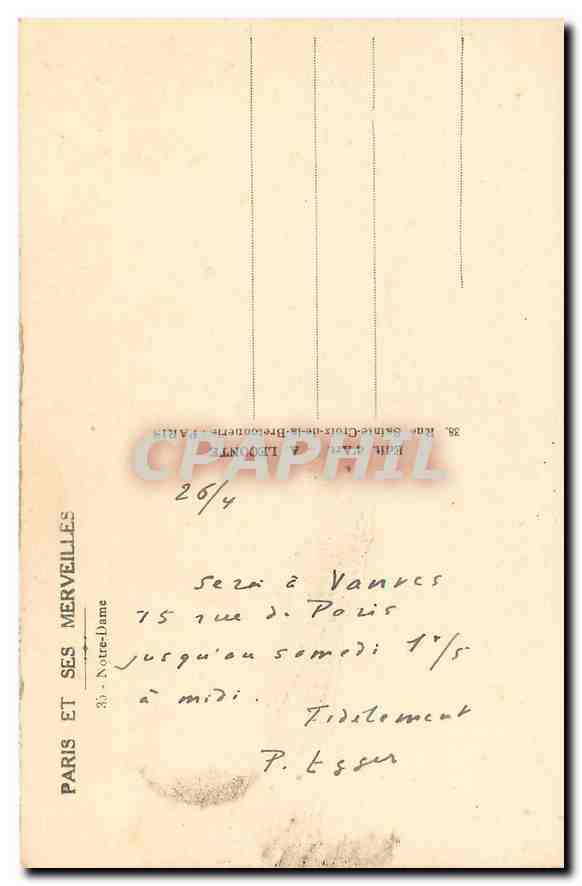 38, Rue Sainte-Croix-de-la-Bretonnerie - PARIS
Edit. d'Art. A. LECONTE
CPAPHIL
26/4
Serai à Vanves
75 rue de Paris
jusqu'au samedi 1er/5
à midi.
Fidèlement
P. Egger
PARIS ET SES MERVEILLES
35 - Notre-Dame